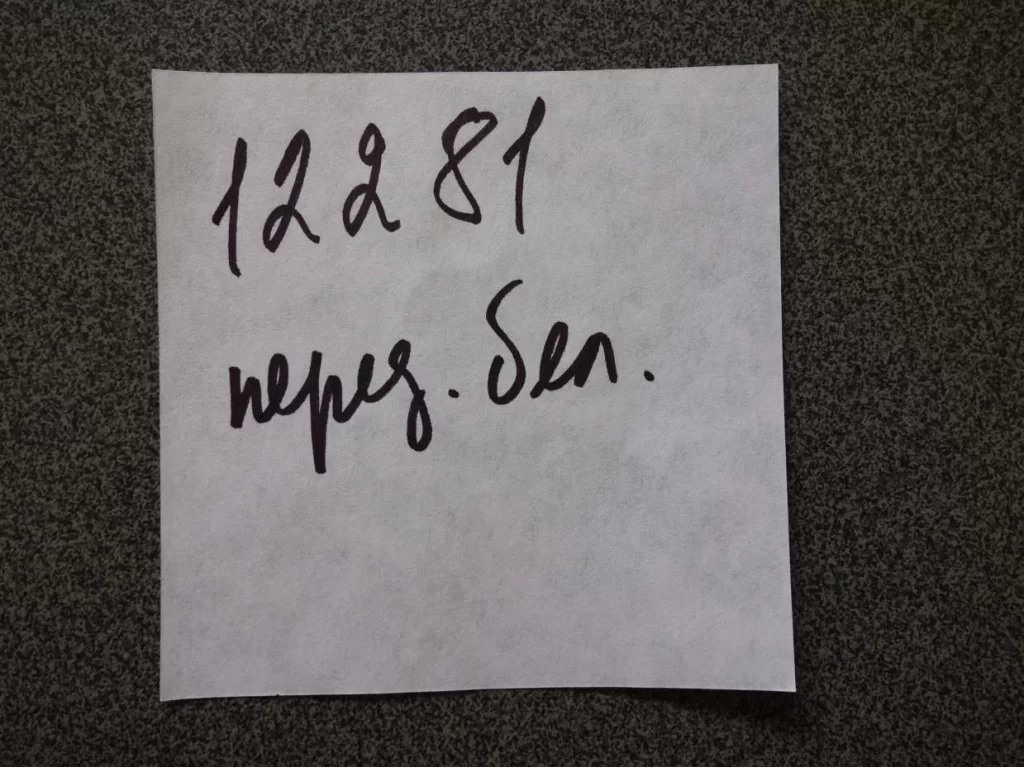 12281
перед. бел.